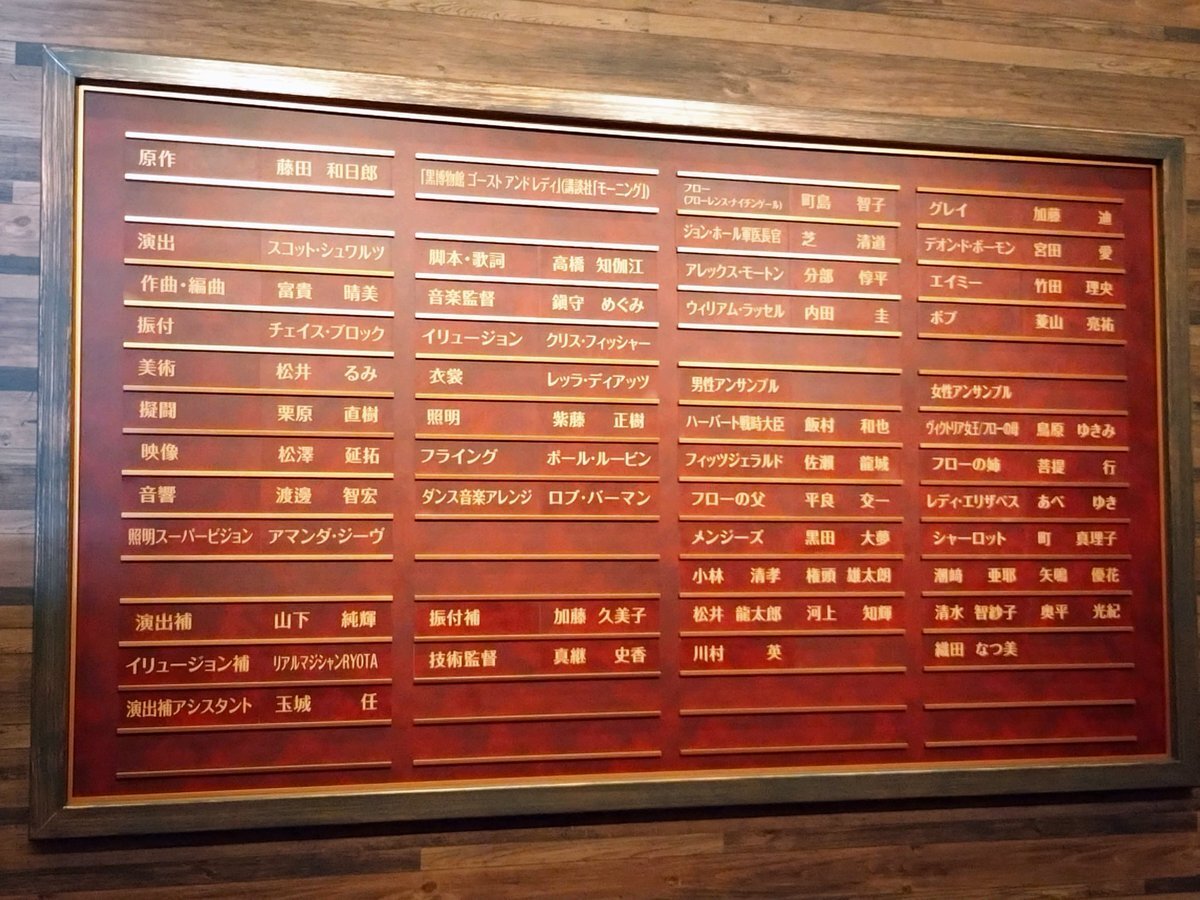 原作 藤田 和日郎
演出 スコット・シュワルツ
作曲・編曲 富貴 晴美
振付 チェイス・ブロック
美術 松井 るみ
擬闘 栗原 直樹
映像 松澤 延拓
音響 渡邉 智宏
照明スーパービジョン アマンダ・ジーヴ
演出補 山下 純輝
イリュージョン補 リアルマジシャンRYOTA
演出補アシスタント 玉城 任
「黒博物館 ゴースト アンド レディ」(講談社「モーニング」)
脚本・歌詞 高橋 知伽江
音楽監督 鎮守 めぐみ
イリュージョン クリス・フィッシャー
衣裳 レッラ・ディアッツ
照明 紫藤 正樹
フライング ポール・ルービン
ダンス音楽アレンジ ロブ・バーマン
振付補 加藤 久美子
技術監督 真継 史香
フロー
(フローレンス・ナイチンゲール) 町島 智子
ジョン・ホール軍医長官 芝 清道
アレックス・モートン 分部 惇平
ウィリアム・ラッセル 内田 圭
男性アンサンブル
ハーバート戦時大臣 飯村 和也
フィッツジェラルド 佐瀬 龍城
フローの父 平良 交一
メンジーズ 黒田 大夢
小林 清孝 権頭 雄太朗
松井 龍太郎 河上 知輝
川村 英
グレイ 加藤 迪
デオンド・ボーモン 宮田 愛
エイミー 竹田 理央
ボブ 菱山 亮祐
女性アンサンブル
ヴィクトリア女王/フローの母 鳥原 ゆきみ
フローの姉 菩提 行
レディ・エリザベス あべ ゆき
シャーロット 町 真理子
潮﨑 亜耶 矢鳴 優花
清水 智紗子 奥平 光紀
織田 なつ美